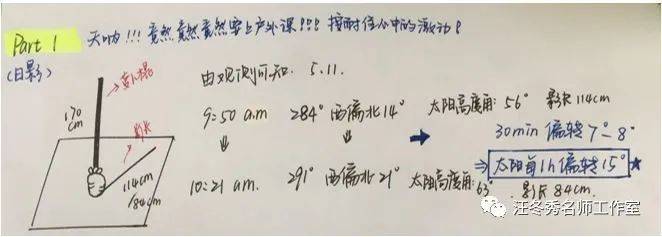 Part 1 天呐!!! 竟然竟然竟然要上户外课!!! 按耐住心中的激动!
(日影)
170
cm
影长
114cm
/84cm
由观测可知: 5.11.
9:50 a.m 284° 西偏北14° 太阳高度角: 56° 影长 114cm
30min 偏转 7°-8°
⇒ 太阳每1h偏转15° ★
10:21 am. 291° 西偏北21° 太阳高度角: 63° 影长 84cm.
汪冬秀名师工作室